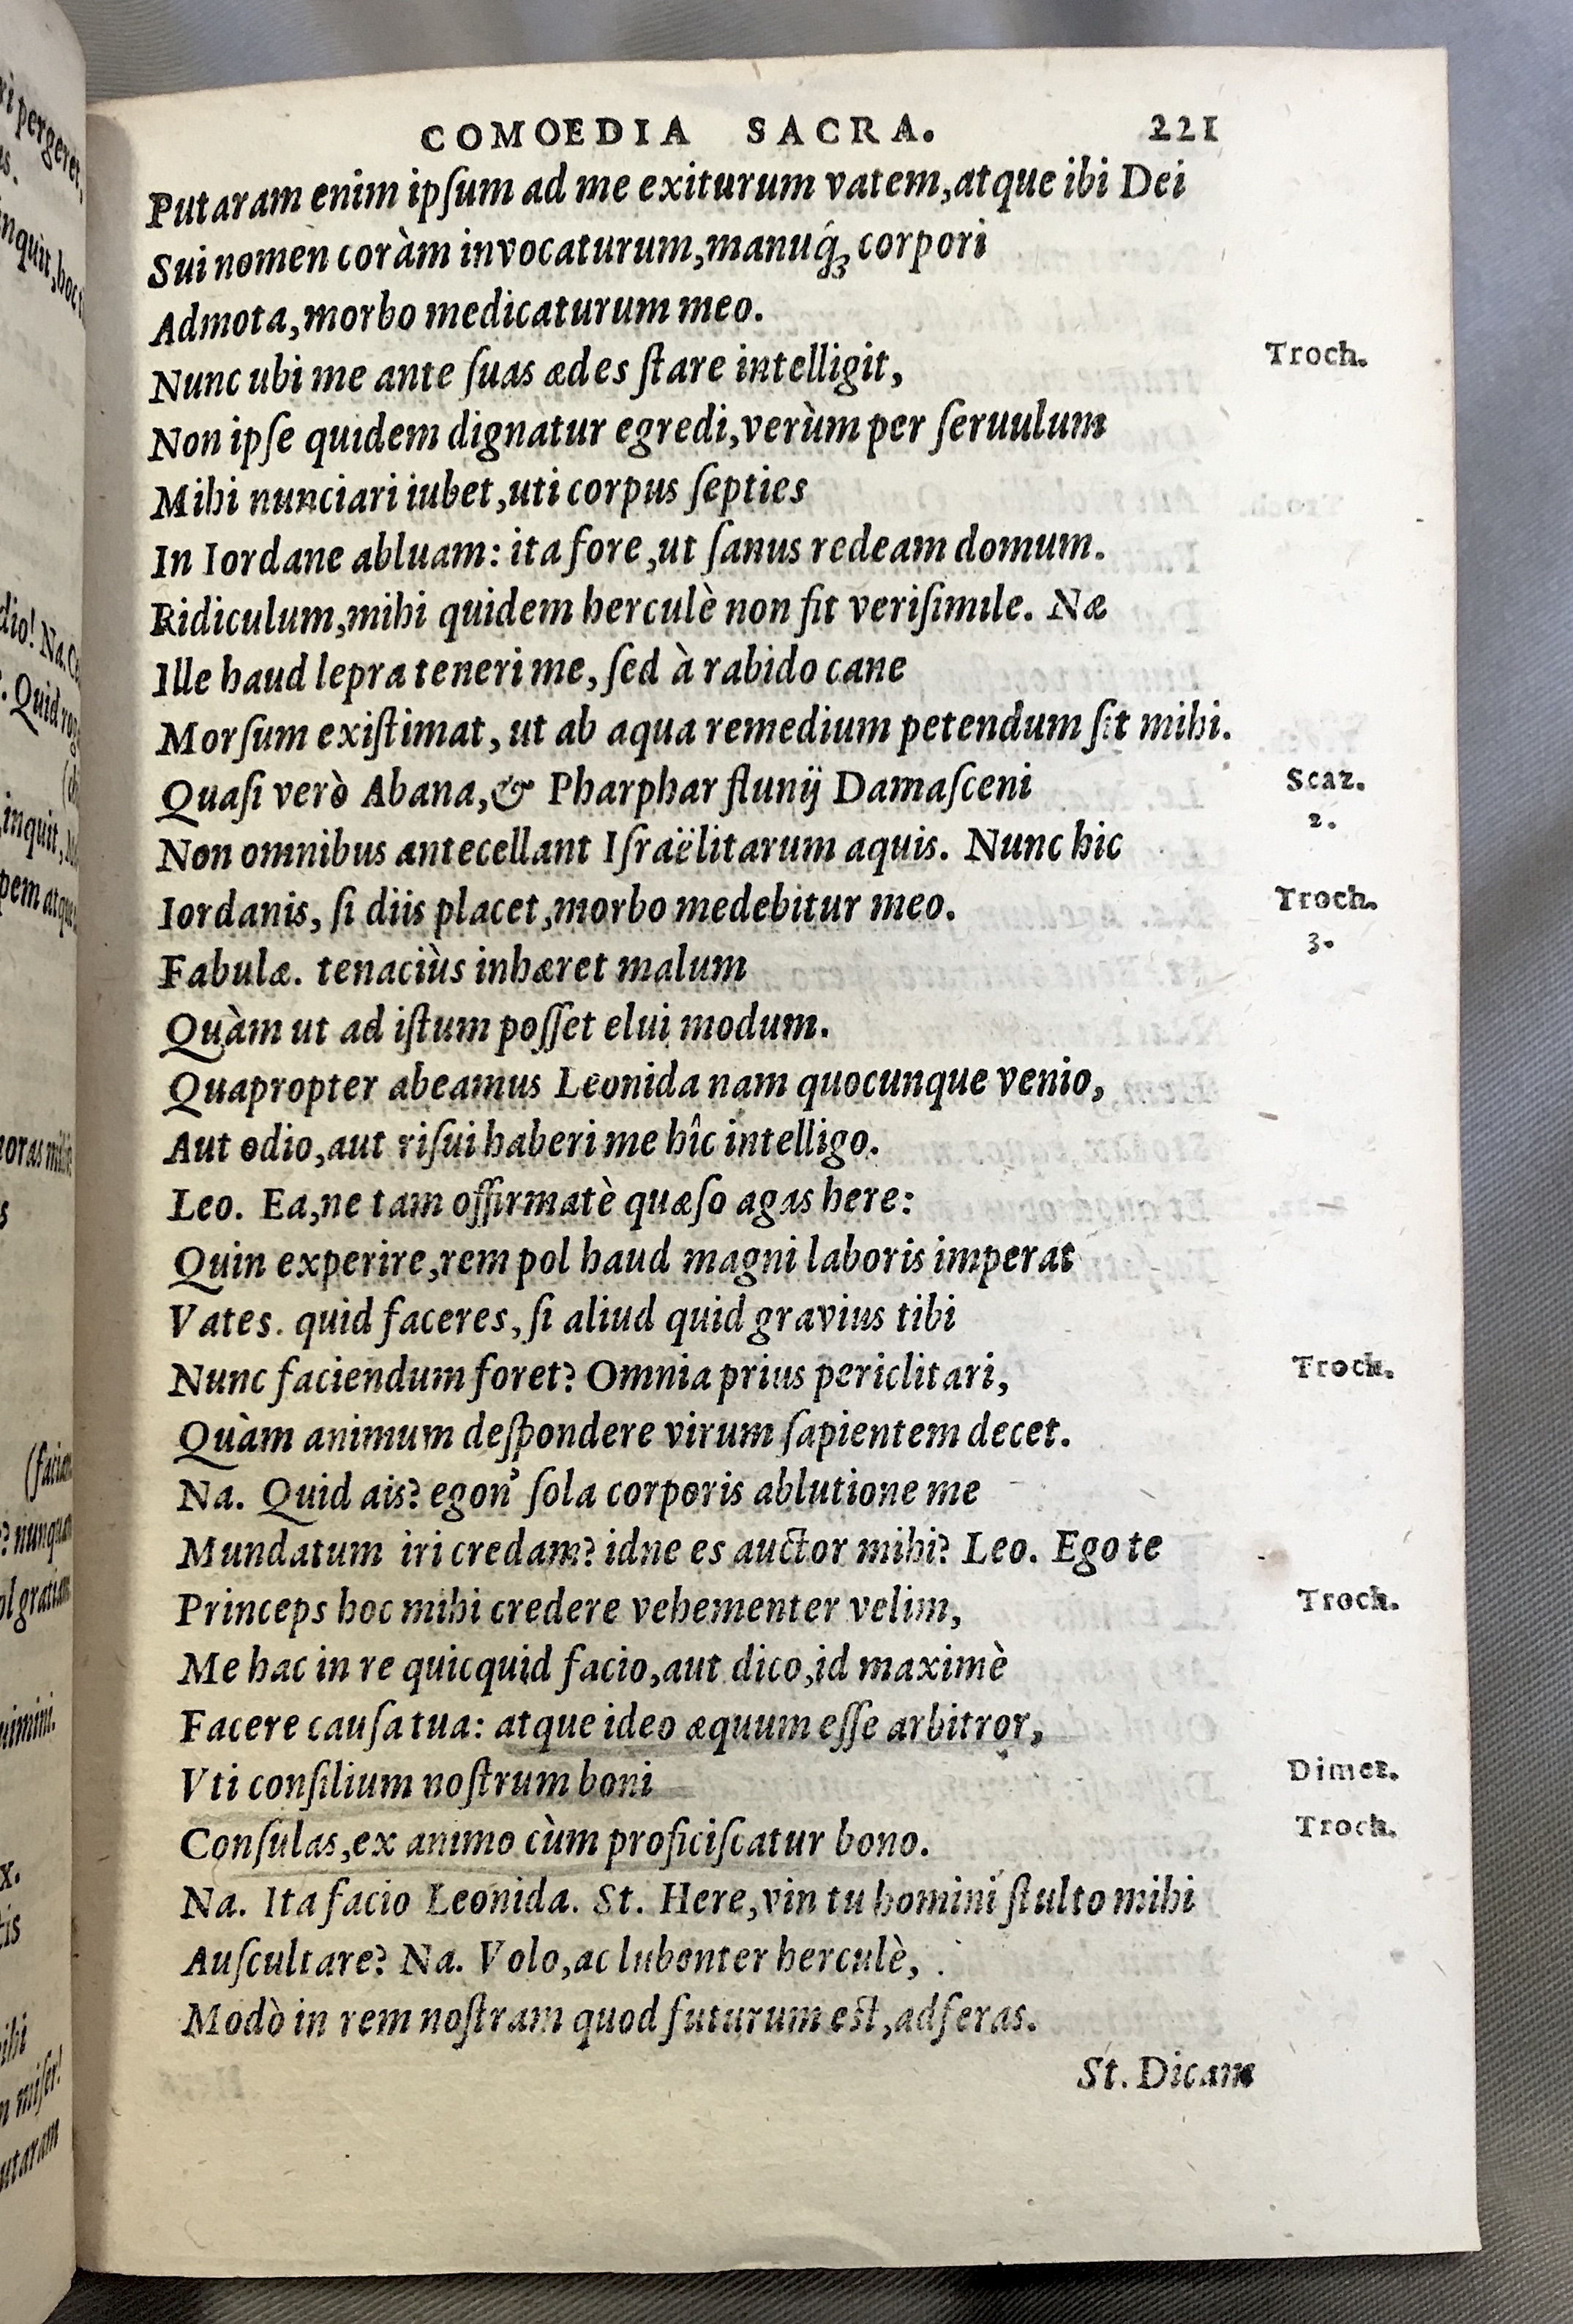 COMOEDIA SACRA. 221
Putaram enim ipſum ad me exiturum vatem, atque ibi Dei
Sui nomen coràm invocaturum, manuq́ꝫ corpori
Admota, morbo medicaturum meo.
Nunc ubi me ante ſuas ædes ſtare intelligit, Troch.
Non ipſe quidem dignatur egredi, verùm per ſeruulum
Mihi nunciari iubet, uti corpus ſepties
In Iordane abluam: ita fore, ut ſanus redeam domum.
Ridiculum, mihi quidem herculè non fit veriſimile. Næ
Ille haud lepra teneri me, ſed à rabido cane
Morſum exiſtimat, ut ab aqua remedium petendum ſit mihi.
Quaſi verò Abana, & Pharphar flunij Damaſceni Scaz.
2.
Non omnibus antecellant Iſraëlitarum aquis. Nunc hic
Iordanis, ſi diis placet, morbo medebitur meo. Troch.
3.
Fabulæ. tenaciùs inhæret malum
Quàm ut ad iſtum poſſet elui modum.
Quapropter abeamus Leonida nam quocunque venio,
Aut odio, aut riſui haberi me hîc intelligo.
Leo. Ea, ne tam offirmatè quæſo agas here:
Quin experire, rem pol haud magni laboris imperat
Vates. quid faceres, ſi aliud quid gravius tibi
Nunc faciendum foret? Omnia prius periclitari, Troch.
Quàm animum deſpondere virum ſapientem decet.
Na. Quid ais? egon' ſola corporis ablutione me
Mundatum iri credam? idne es auctor mihi? Leo. Ego te
Princeps hoc mihi credere vehementer velim, Troch.
Me hac in re quicquid facio, aut dico, id maximè
Facere cauſa tua: atque ideo æquum eſſe arbitror,
Vti conſilium noſtrum boni Dimet.
Conſulas, ex animo cùm proficiſcatur bono. Troch.
Na. Ita facio Leonida. St. Here, vin tu homini ſtulto mihi
Auſcultare? Na. Volo, ac lubenter herculè,
Modò in rem noſtram quod futurum eſt, adferas.
St. Dicam